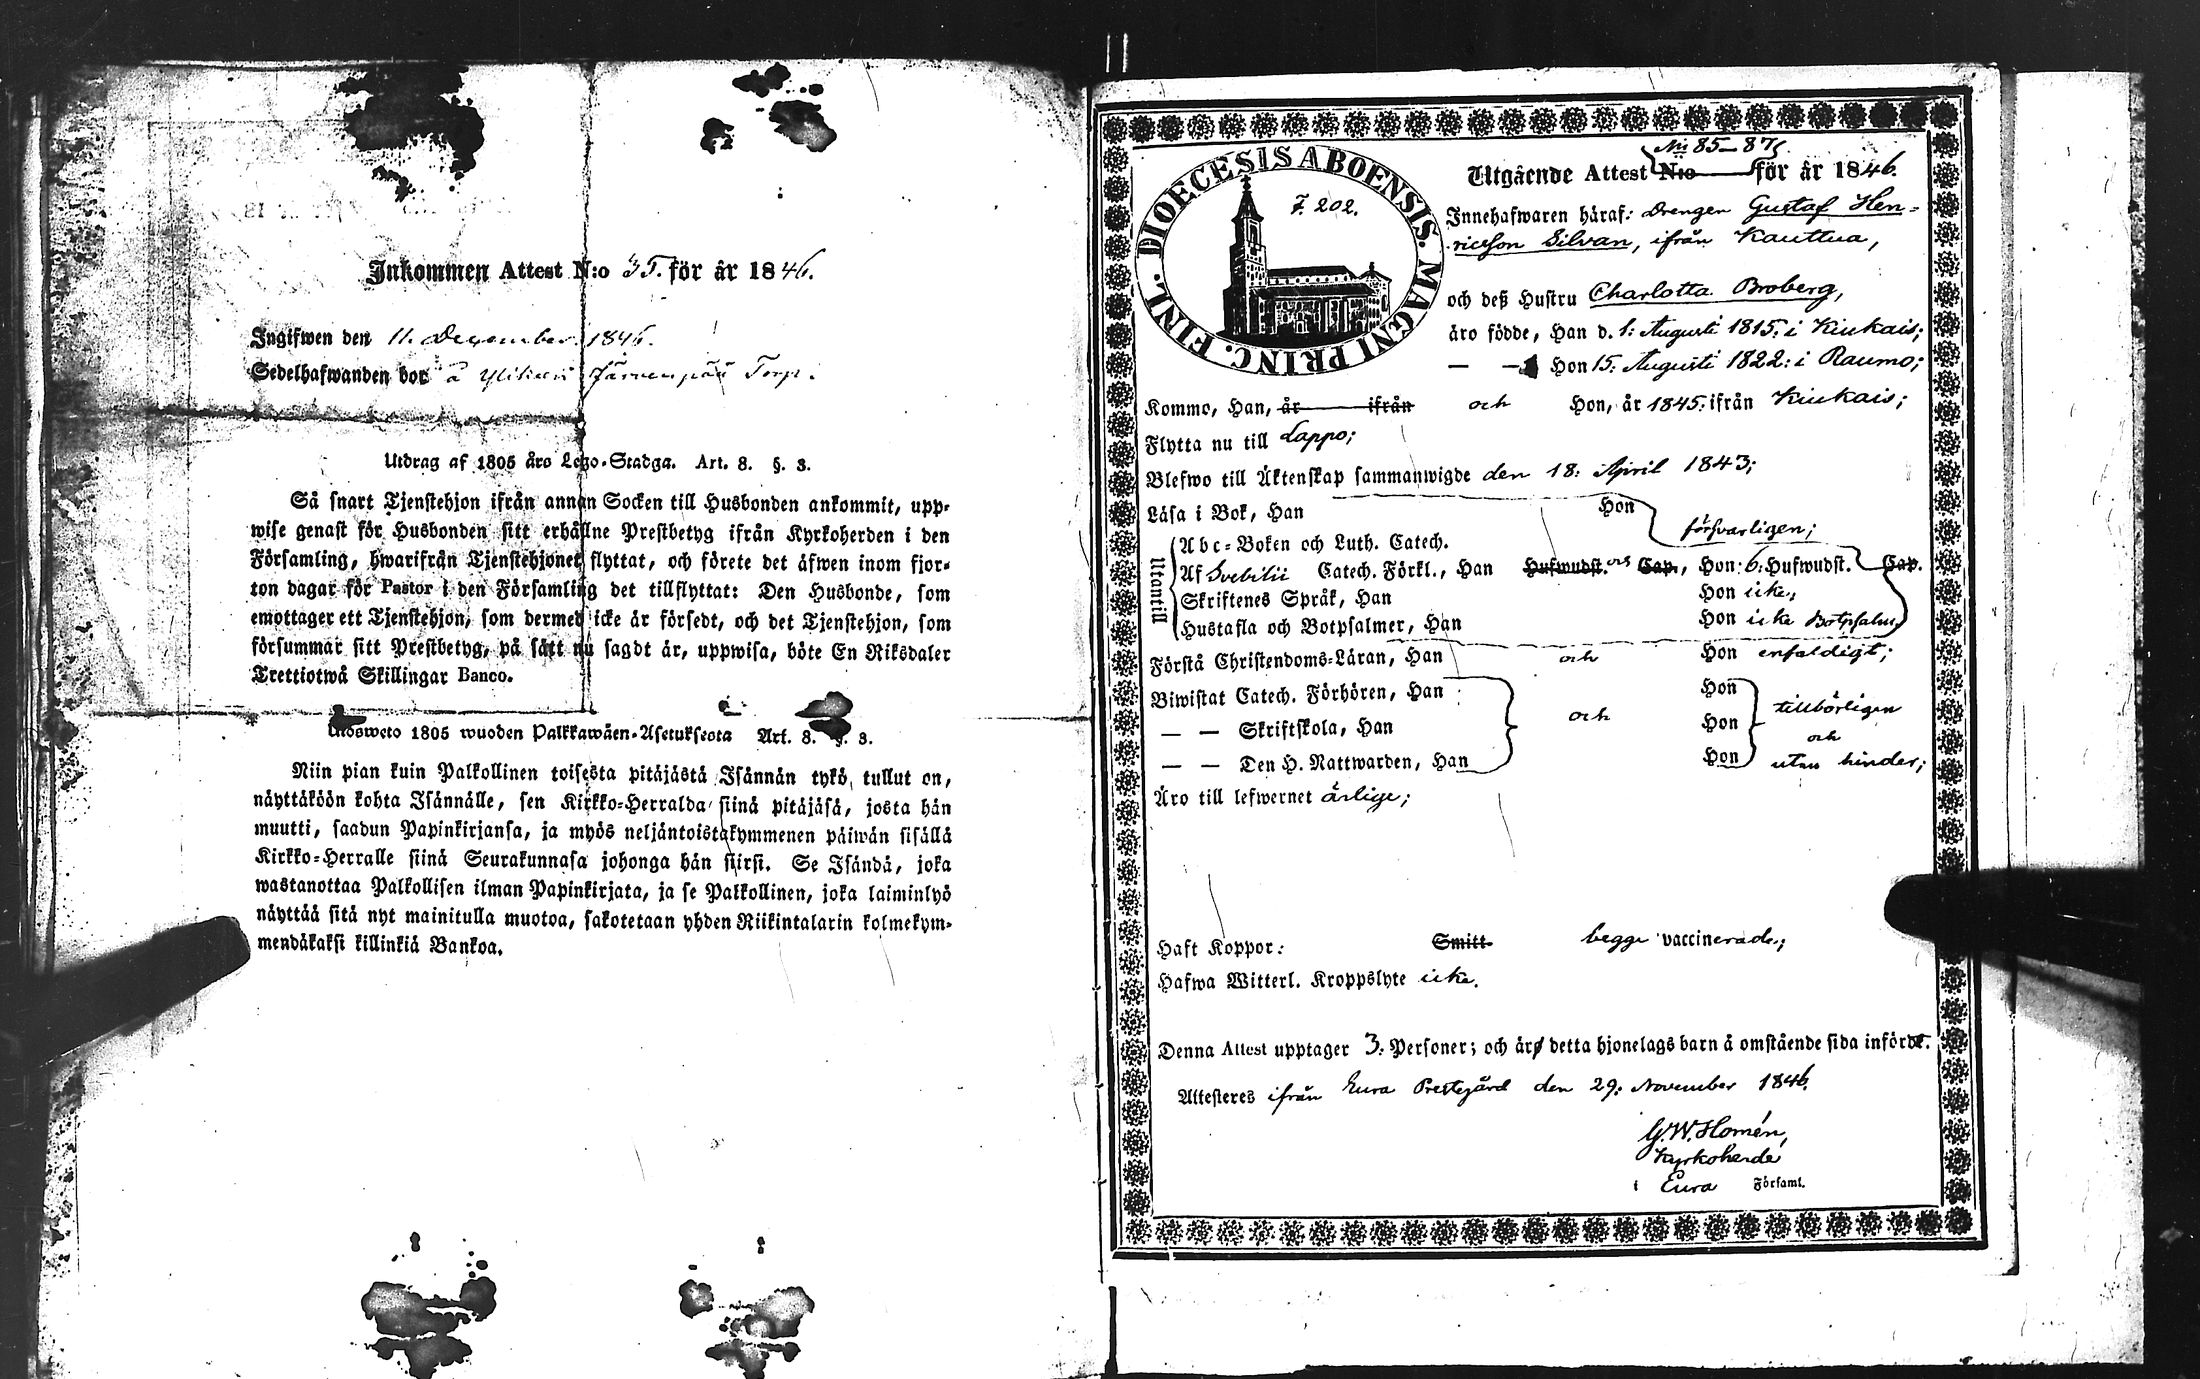 Inkommen Attest N:o 35. för år 1846.
Ingifwen den 11. December 1846.
Sedelhafwanden bor å Ylikärri Järvenpää Torp.
Utdrag af 1805 års Lego-Stadga. Art. 8. §. 3.
Så snart Tjenstehjon ifrån annan Socken till Husbonden ankommit, upp-
wise genast för Husbonden sitt erhållne Prestbetyg ifrån Kyrkoherden i den
Församling, hwarifrån Tjenstehjonet flyttat, och förete det äfwen inom fjor-
ton dagar för Pastor i den Församling det tillflyttat: Den Husbonde, som
emottager ett Tjenstehjon, som dermed icke är försedt, och det Tjenstehjon, som
försummar sitt Prestbetyg, på sätt nu sagdt är, uppwisa, böte En Riksdaler
Trettiotwå Skillingar Banco.
Ulosweto 1805 wuoden Palkkawäen-Asetuksesta Art. 8. §. 3.
Niin pian kuin Palkollinen toisesta pitäjästä Isännän tykö tullut on,
näyttäköön kohta Isännälle, sen Kirkko-Herralda siinä pitäjäsä, josta hän
muutti, saadun Papinkirjansa, ja myös neljäntoistakymmenen päiwän sisällä
Kirkko-Herralle siinä Seurakunnasa johonga hän siirsi. Se Isändä, joka
wastanottaa Palkollisen ilman Papinkirjata, ja se Palkollinen, joka laiminlyö
näyttää sitä nyt mainitulla muotoa, sakotetaan yhden Riikintalarin kolmekym-
mendäkaksi killinkiä Bankoa.
DIOECESIS ABOENSIS. MAGNI PRINC. FINL.
F. 202.
No 85–87
Utgående Attest N:o för år 1846.
Innehafwaren häraf: Drengen Gustaf Hen-
ricsson Silvan, ifrån Kauttua,
och deß Hustru Charlotta Broberg,
äro födde, Han d. 1: Augusti 1815: i Kiukais;
— — Hon 15: Augusti 1822: i Raumo;
Kommo, Han, år ifrån och Hon, år 1845: ifrån Kiukais;
Flytta nu till Lappo;
Blefwo till Äktenskap sammanwigde den 18: April 1843;
Läsa i Bok, Han Hon
försvarligen;
Utantill
Abc-Boken och Luth. Catech.
Af Svebilii Catech. Förkl., Han Hufwudst. och Cap., Hon: 6: Hufwudst. Cap.
Skriftenes Språk, Han Hon icke,
Hustafla och Botpsalmer, Han Hon icke Botpsalm.
Förstå Christendoms-Läran, Han och Hon enfaldigt;
Biwistat Catech. Förhören, Han Hon
— — Skriftskola, Han och Hon tillbörligen
och
— — Den H. Nattwarden, Han Hon utan hinder;
Äro till lefwernet ärlige;
Haft Koppor: Smitt- begge vaccinerade;
Hafwa Witterl. Kroppslyte icke.
Denna Attest upptager 3: Personer; och äro detta hjonelags barn å omstående sida införde.
Attesteres ifrån Eura Prestegård den 29: November 1846.
G.W. Homén,
Kyrkoherde
i Eura Församl.